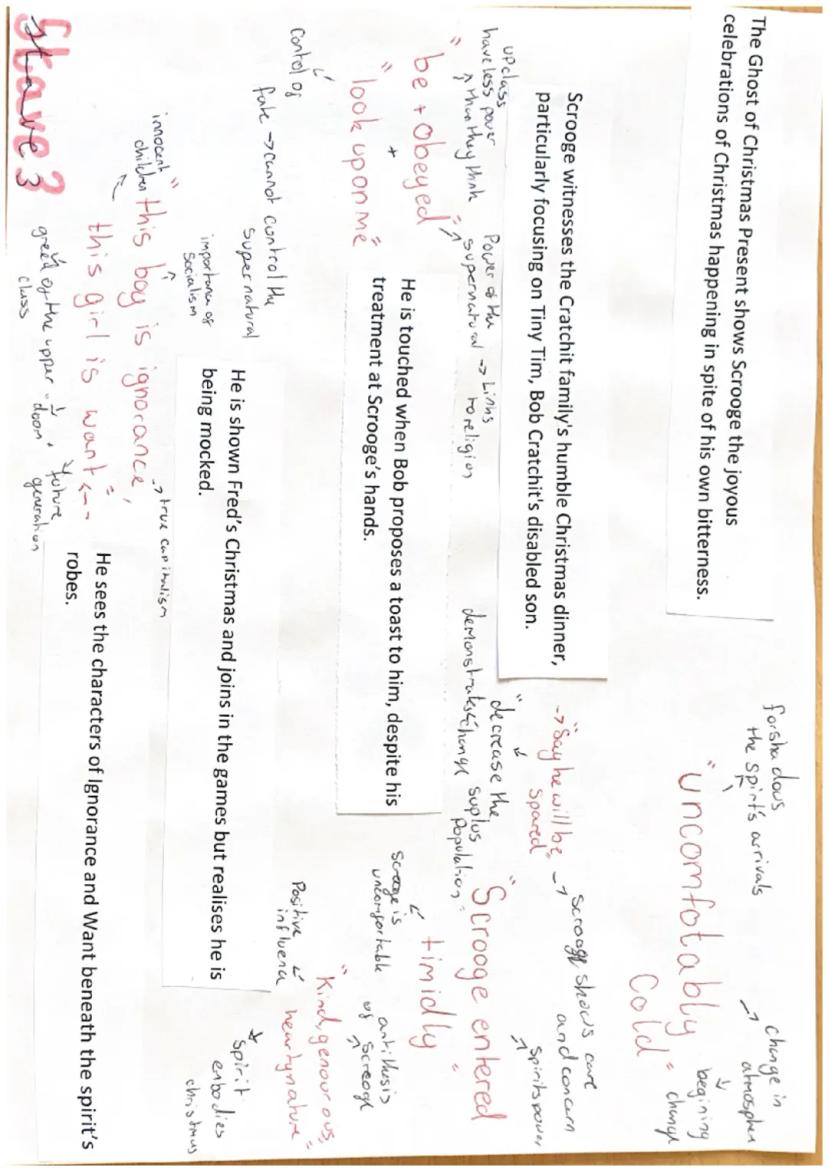 Stave 3
The Ghost of Christmas Present shows Scrooge the joyous
celebrations of Christmas happening in spite of his own bitterness.
forshadows
the spirit's arrivals
"uncomfotably
Cold"
change in
atmospher
begining
change
Scrooge witnesses the Cratchit family's humble Christmas dinner,
particularly focusing on Tiny Tim, Bob Cratchit's disabled son.
→ "Say he will be
spared"
→ Scrooge shows care
and concern
"decrease the
suplus
population"
demonstrates change
up class
have less power
than they think
"be + obeyed"
+
"look upon me"
Power of the
supernatural → Links
to religion
Control of
fate → cannot control the
supernatural
He is touched when Bob proposes a toast to him, despite his
treatment at Scrooge's hands.
"Scrooge entered
timidly"
spirits power
Scrooge is
uncomfortable
antithesis
of Scrooge
"Kind, genourous,
heartynature"
Positive
influence
spirit
enbodies
christmas
He is shown Fred's Christmas and joins in the games but realises he is
being mocked.
innocent
children
"this boy is ignorance,
this girl is want"
importance of
socialism
→ true capitalism
greed of the upper
class
doom
future
generation
He sees the characters of Ignorance and Want beneath the spirit's
robes.